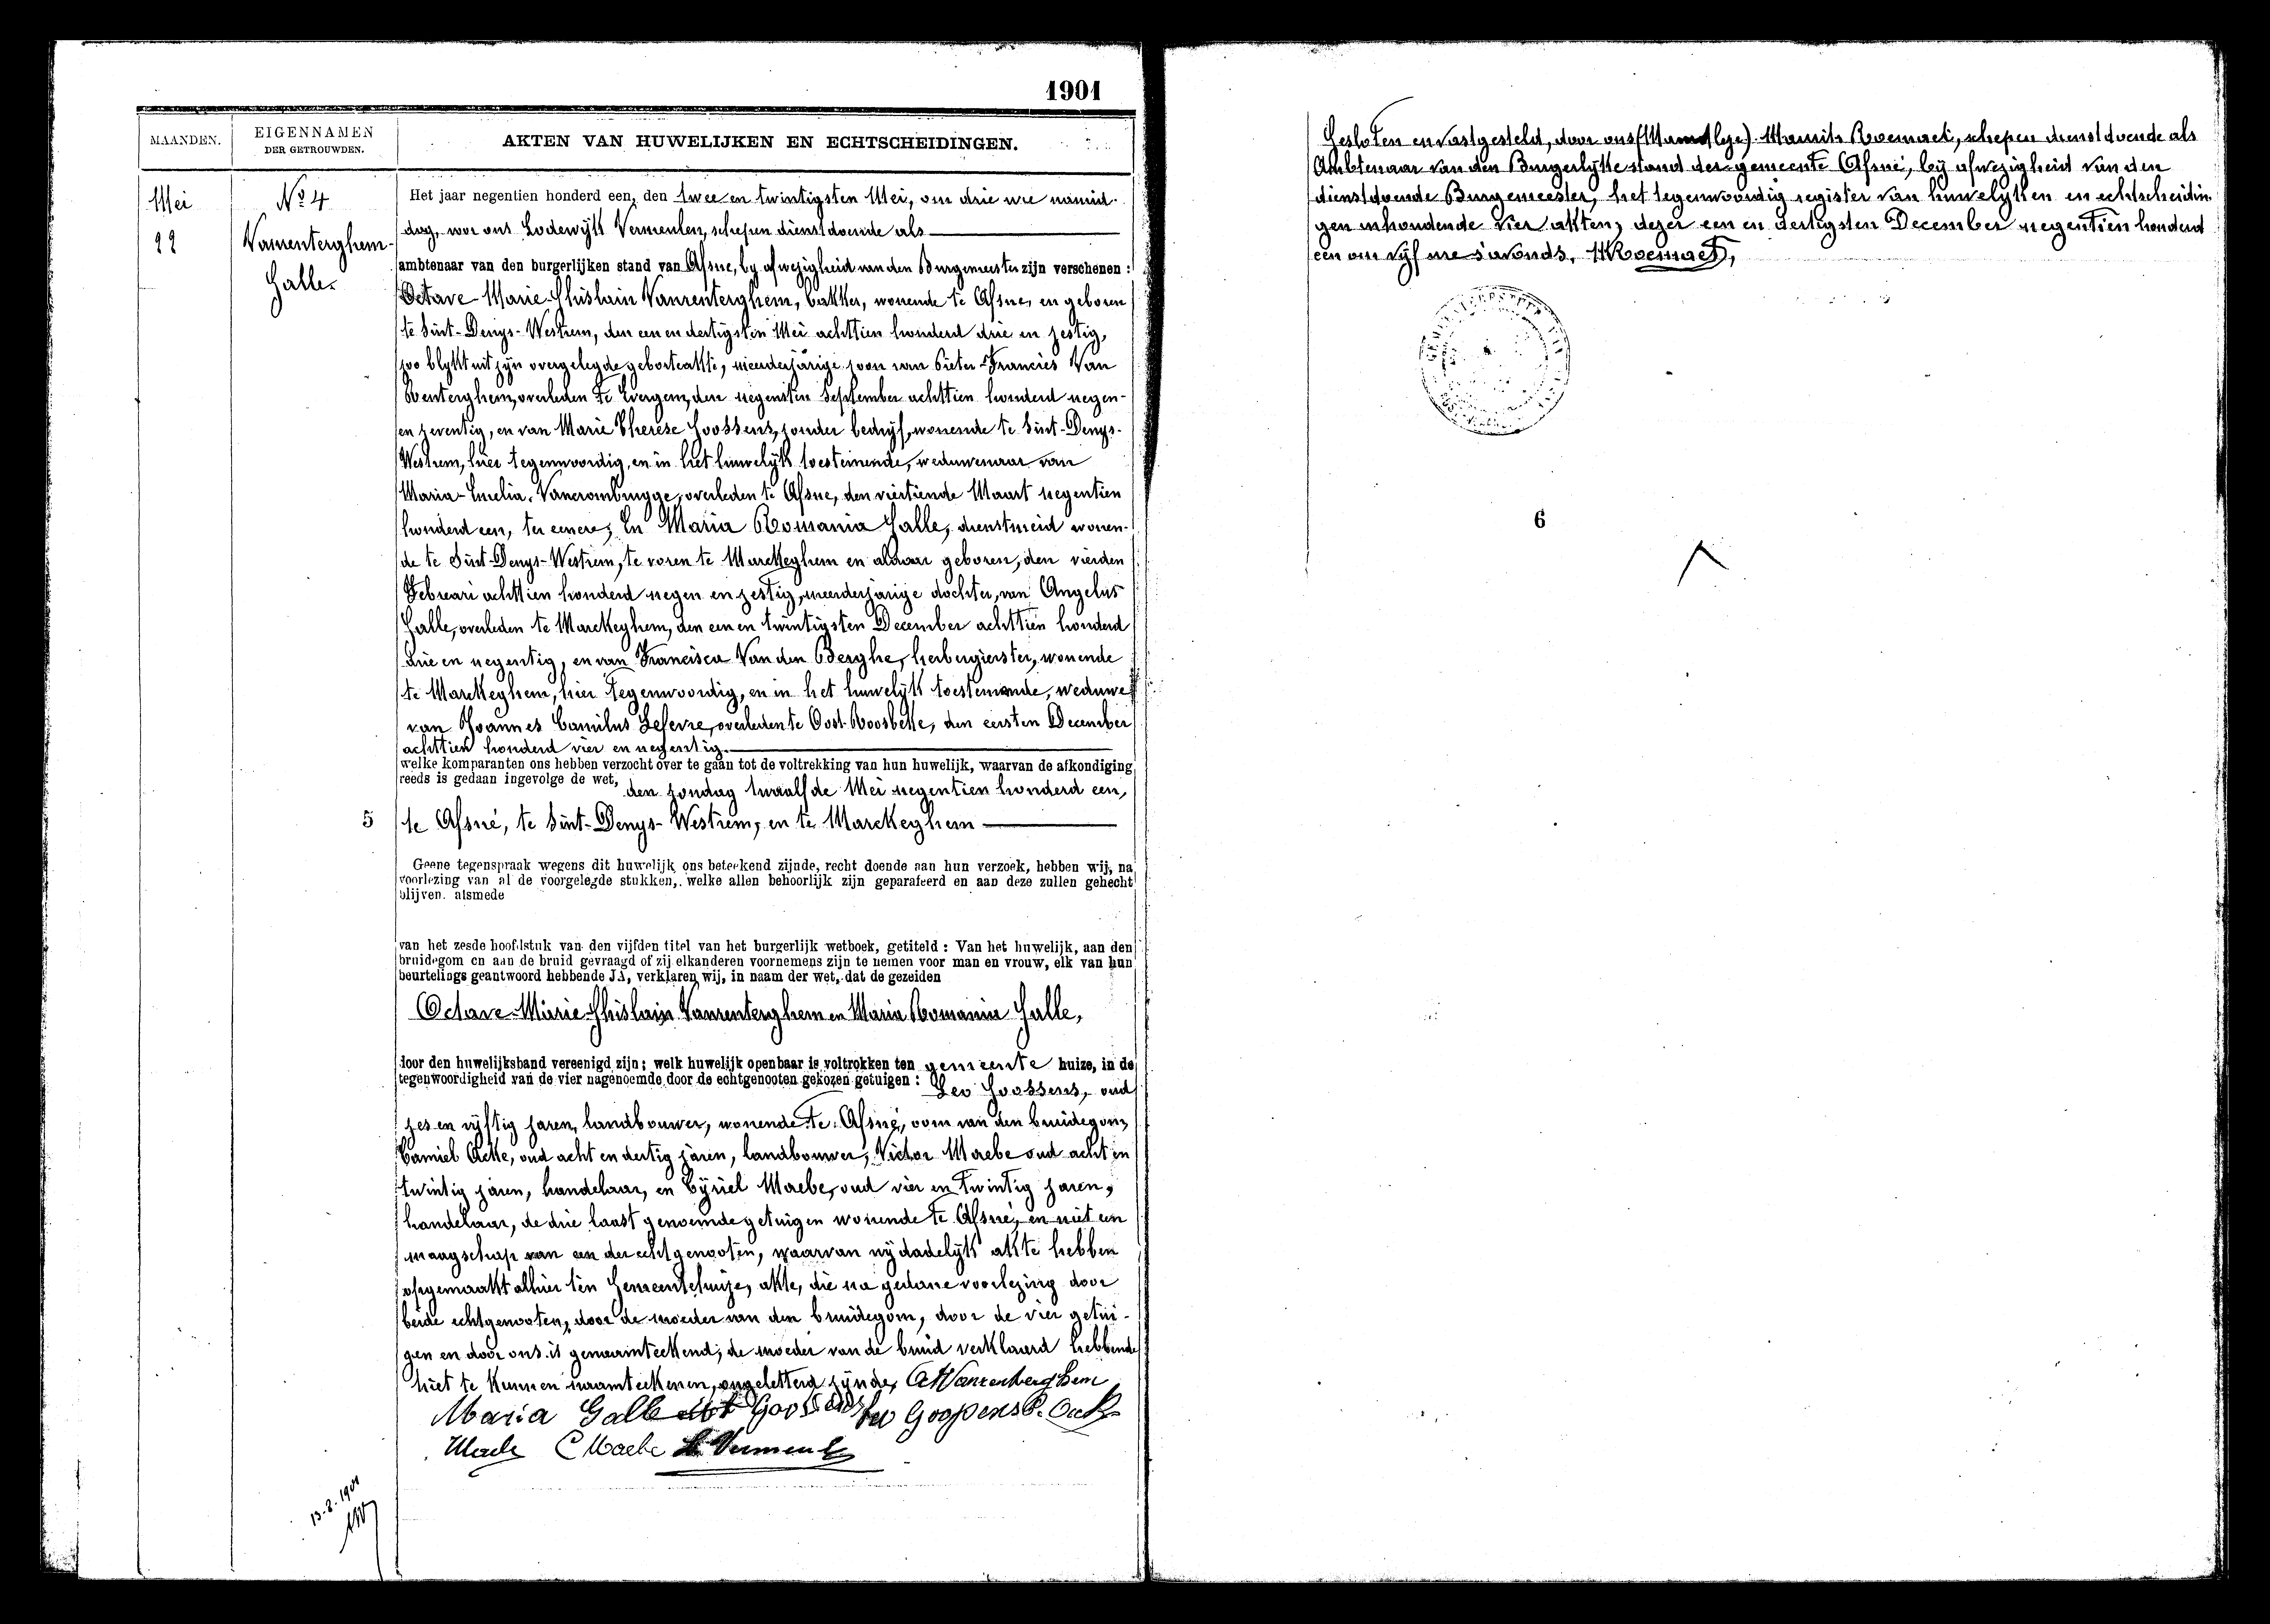 1901
MAANDEN.
EIGENNAMEN
DER GETROUWDEN.
AKTEN VAN HUWELIJKEN EN ECHTSCHEIDINGEN.
Mei
22
No 4
Vanrenterghem-
Galle.
Het jaar negentien honderd een, den twee en twintigsten Mei, om drie ure namid-
dag, voor ons Lodewijk Vermeulen, schepen dienstdoende als
ambtenaar van den burgerlijken stand van Afsne, by afwezigheid van den Burgemeester zijn verschenen :
Octave Marie Ghislain Vanrenterghem, bakker, wonende te Afsne, en geboren
te Sint-Denys-Westrem, den een en dertigsten Mei achttien honderd drie en zestig,
zoo blykt uit zyn overgelegde geboorteakte, meerderjarige zoon van Pieter-Francies Van
Renterghem, overleden te Evergem, den negensten September achttien honderd negen-
en zeventig, en van Marie Therese Goossens, zonder bedryf, wonende te Sint-Denys-
Westrem, hier tegenwoordig, en in het huwelyk toestemende, weduwenaar van
Maria-Emelia Vancrombrugge, overleden te Afsne, den viertiende Maart negentien
honderd een, ter eenere; En Maria Romania Galle, dienstmeid wonen-
de te Sint-Denys-Westrem, te voren te Marckeghem en aldaar geboren, den vierden
Februari achttien honderd negen en zestig, meerderjarige dochter, van Angelus
Galle, overleden te Marckeghem, den een en twintigsten December achttien honderd
drie en negentig, en van Francisca Van den Berghe, herbergierster, wonende
te Marckeghem, hier tegenwoordig, en in het huwelyk toestemende, weduwe
van Joannes Camilus Lefevre, overleden te Oost-Roosbeke, den eersten December
achttien honderd vier en negentig.
welke komparanten ons hebben verzocht over te gaan tot de voltrekking van hun huwelijk, waarvan de afkondiging
reeds is gedaan ingevolge de wet, den zondag twaalfde Mei negentien honderd een,
5 te Afsné, te Sint-Denys-Westrem, en te Marckeghem
Geene tegenspraak wegens dit huwelijk ons beteekend zijnde, recht doende aan hun verzoek, hebben wij, na
voorlezing van al de voorgelegde stukken, welke allen behoorlijk zijn geparafeerd en aan deze zullen gehecht
blijven. alsmede
van het zesde hoofdstuk van den vijfden titel van het burgerlijk wetboek, getiteld : Van het huwelijk, aan den
bruidegom en aan de bruid gevraagd of zij elkanderen voornemens zijn te nemen voor man en vrouw, elk van hun
beurtelings geantwoord hebbende JA, verklaren wij, in naam der wet, dat de gezeiden
Octave Marie Ghislain Vanrenterghem en Maria Romania Galle,
door den huwelijksband vereenigd zijn; welk huwelijk openbaar is voltrokken ten gemeente huize, in de
tegenwoordigheid van de vier nagenoemde door de echtgenooten gekozen getuigen : Leo Goossens, oud
zes en vyftig jaren, landbouwer, wonende te Afsné, oom van den bruidegom,
Camiel Acke, oud acht en dertig jaren, landbouwer, Victor Maebe oud acht en
twintig jaren, handelaar, en Cyriel Maebe, oud vier en twintig jaren,
handelaar, de drie laatst genoemde getuigen wonende te Afsné, en niet een
maagschap van een der echtgenooten, waarvan wy dadelyk akte hebben
opgemaakt alhier ten Gemeentehuize, akte, die na gedane voorlezing door
beide echtgenooten, door de moeder van den bruidegom, door de vier getui-
gen en door ons is genaamteekend; de moeder van de bruid verklaard hebbende
niet te kunnen naamteekenen, ongeletterd zynde, Vanrenterghem
Maria Galle Goossens Leo Goossens
Maebe C Maebe L. Vermeulen
13-8-1901
Gesloten en vastgesteld, door ons Roemaet, schepen dienstdoende als
Ambtenaar van den Burgerlyke stand der gemeente Afsné, by afwezigheid van den
dienstdoende Burgemeester, het tegenwoordig register van huwelyken en echtscheidin-
gen inhoudende vier akten, dezer een en dertigsten December negentien honderd
een om vyf ure s'avonds. Roemaet,
6